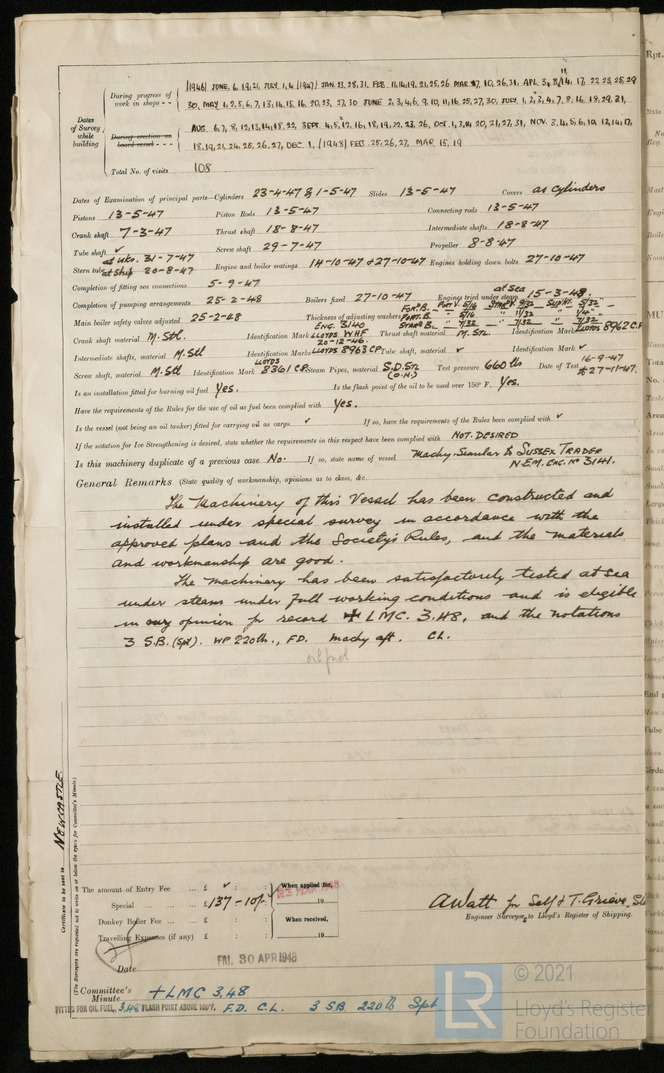 [1946] JUNE, 6, 19, 21, JULY, 1, 4, [1947] JAN 23, 28, 31, FEB. 11, 14, 19, 21, 25, 26 MAR. 7, 10, 26, 31, APL. 3, 8, 14, 17, 22 23, 25, 29
During progress of work in shops - -
30, MAY 1, 2, 5, 6, 7, 13, 14, 15, 16, 20, 23, 27, 30 JUNE 2, 3, 4, 6, 9, 10, 11, 16, 25, 27, 30, JULY, 1, 2, 4, 7, 8, 16, 18, 29, 31,
Dates of Survey while building
During erection on board vessel - -
AUG. 6, 7, 8, 12, 13, 14, 18, 22, SEPT. 4, 5, 12, 16, 18, 19, 22, 23, 26, OCT. 1, 3, 14, 20, 21, 27, 31, NOV. 3, 4, 5, 6, 10, 12, 14, 17,
18, 19, 21, 24, 25, 26, 27, DEC. 1, [1948] FEB. 25, 26, 27, MAR. 15, 19
Total No. of visits 108
Dates of Examination of principal parts—Cylinders 23-4-47 & 1-5-47 Slides 13-5-47 Covers as cylinders
Pistons 13-5-47 Piston Rods 13-5-47 Connecting rods 13-5-47
Crank shaft 7-3-47 Thrust shaft 18-8-47 Intermediate shafts 18-8-47
Tube shaft ✓ Screw shaft 29-7-47 Propeller 8-8-47
Stern tube at wks. 31-7-47 at ship 20-8-47 Engine and boiler seatings 14-10-47 & 27-10-47 Engines holding down bolts 27-10-47
Completion of fitting sea connections 5-9-47
Completion of pumping arrangements 25-2-48 Boilers fixed 27-10-47 Engines tried under steam at sea 15-3-48.
Main boiler safety valves adjusted 25-2-48 Thickness of adjusting washers
Crank shaft material M. Stl. Identification Mark ENG. 3140 LLOYDS WHF 20-12-46. Thrust shaft material M. Stl. Identification Mark LLOYDS 8962 CP
Intermediate shafts, material M. Stl Identification Marks LLOYDS 8963 CP Tube shaft, material ✓ Identification Mark ✓
Screw shaft, material M. Stl Identification Mark LLOYDS 8361 CP Steam Pipes, material S.D. Stl (O.H.) Test pressure 660 lbs Date of Test 16-9-47 & 27-11-47.
Is an installation fitted for burning oil fuel Yes. Is the flash point of the oil to be used over 150° F. Yes.
Have the requirements of the Rules for the use of oil as fuel been complied with Yes.
Is the vessel (not being an oil tanker) fitted for carrying oil as cargo ✓ If so, have the requirements of the Rules been complied with ✓
If the notation for Ice Strengthening is desired, state whether the requirements in this respect have been complied with NOT DESIRED
Is this machinery duplicate of a previous case No. If so, state name of vessel Machy. Similar to SUSSEX TRADER
N.E.M. ENG. No 3141.
General Remarks (State quality of workmanship, opinions as to class, &c.
The Machinery of this Vessel has been constructed and
installed under special survey in accordance with the
approved plans and the Society's Rules, and the materials
and workmanship are good.
The machinery has been satisfactorily tested at sea
under steam under full working conditions and is eligible
in my opinion for record ✠ LMC. 3.48, and the notations
3 S.B. (Spt). WP 220 lb., FD. machy aft. CL.
oil fuel
Certificate to be sent to NEWCASTLE.
(The Surveyors are requested not to write on or below the space for Committee's Minute.)
The amount of Entry Fee ... £ ✓ : : When applied for,
Special ... ... £ 137-10/- 19
Donkey Boiler Fee ... ... £ : : When received,
Travelling Expenses (if any) £ : : 19
A Watt for Self & T. Grieve,
Engineer Surveyors to Lloyd's Register of Shipping.
Date FRI. 30 APR 1948
Committee's Minute +LMC 3,48
FITTED FOR OIL FUEL, 3,48 FLASH POINT ABOVE 150°F. F.D. C.L. 3 S.B. 220 lb Spt.
LR
© 2021
Lloyd's Register
Foundation